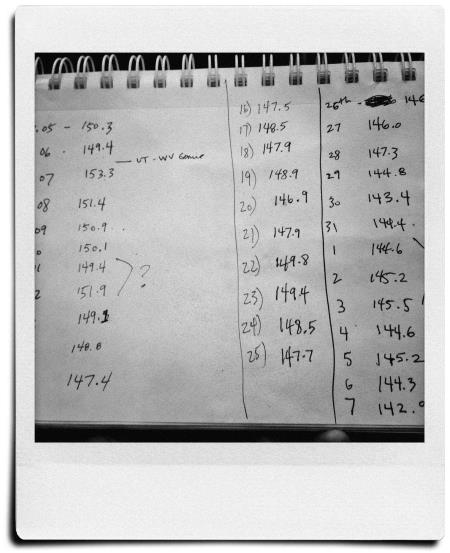 .05 - 150.3
06 . 149.4 — UT - WV Game
07 153.3
08 151.4
09 150.9 . .
0 150.1
1 149.4
2 151.9 ?
149.1
148.8
147.4
16) 147.5
17) 148.5
18) 147.9
19) 148.9
20) 146.9
21) 147.9
22) 149.8
23) 149.4
24) 148.5
25) 147.7
26th - 146
27 146.0
28 147.3
29 144.8
30 143.4
31 144.4
1 144.6
2 145.2
3 145.5
4 144.6
5 145.2
6 144.3
7 142.9